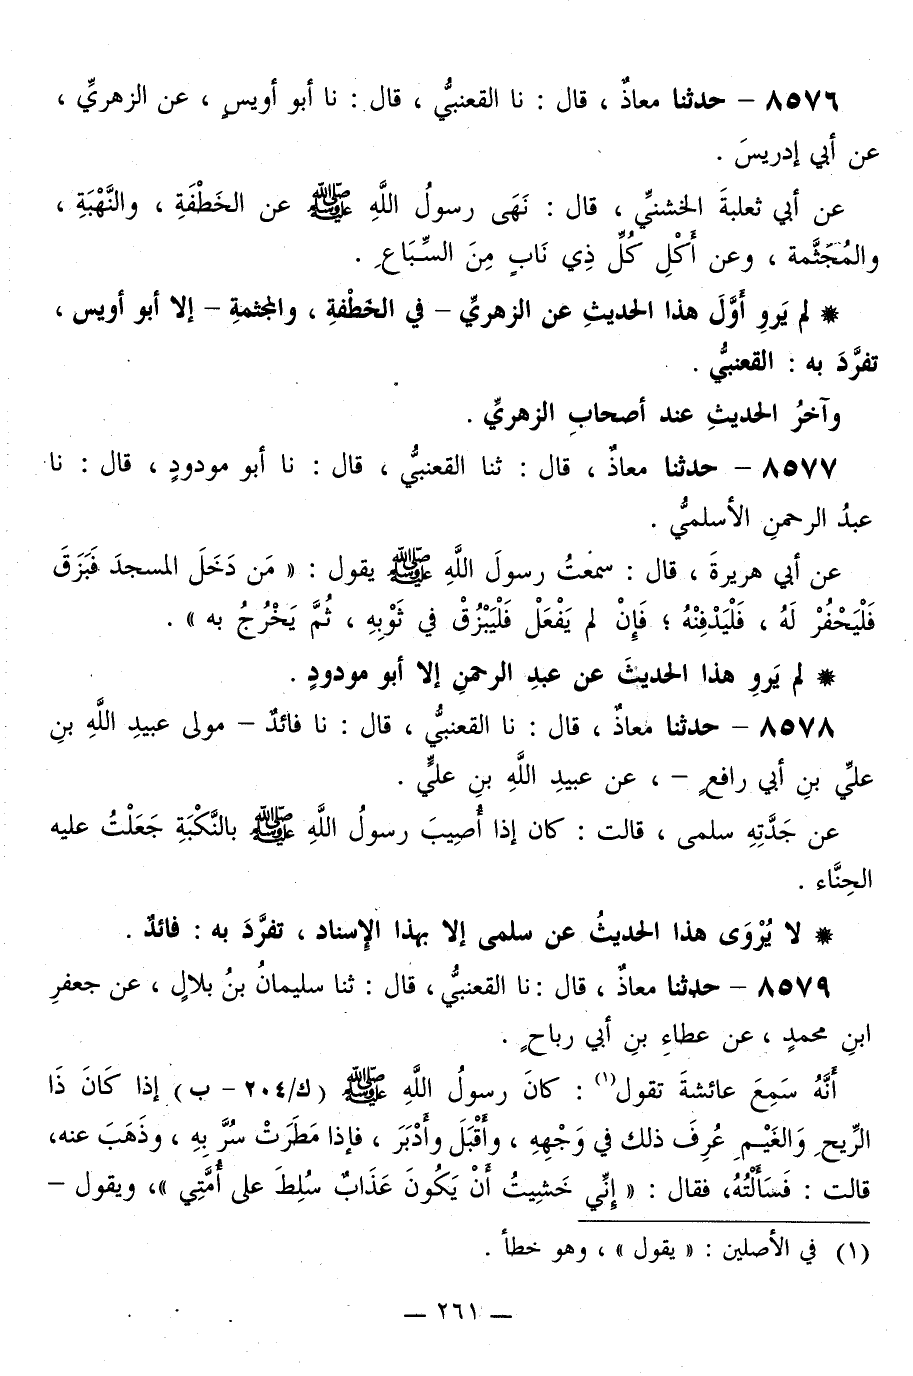 ٨٥٧٦ – حدثنا معاذٌ ، قال : نا القعنبيُّ ، قال : نا أبو أويسٍ ، عن الزهريِّ ،
عن أبي إدريسَ .
عن أبي ثعلبةَ الخشنيِّ ، قال : نَهَى رسولُ اللَّهِ ﷺ عن الخَطْفَةِ ، والنَّهْبَةِ ،
والمُجَثَّمة ، وعن أَكْلِ كُلِّ ذِي نَابٍ مِنَ السِّبَاعِ .
* لم يَروِ أَوَّلَ هذا الحديثِ عن الزهريِّ – في الخَطْفةِ ، والمجثمةِ – إلا أبو أويس ،
تفرَّدَ به : القعنبيُّ .
وآخرُ الحديثِ عند أصحابِ الزهريِّ .
٨٥٧٧ – حدثنا معاذٌ ، قال : ثنا القعنبيُّ ، قال : نا أبو مودودٍ ، قال : نا
عبدُ الرحمنِ الأسلميُّ .
عن أبي هريرةَ ، قال : سمعتُ رسولَ اللَّهِ ﷺ يقول : « مَن دَخَلَ المسجدَ فَبَزَقَ
فَلْيَحْفُرْ لَهُ ، فَلْيَدْفِنْهُ ؛ فَإِنْ لم يَفْعَلْ فَلْيَبْزُقْ في ثَوْبِهِ ، ثُمَّ يَخْرُجُ به » .
* لم يَروِ هذا الحديثَ عن عبدِ الرحمنِ إلا أبو مودودٍ .
٨٥٧٨ – حدثنا معاذٌ ، قال : نا القعنبيُّ ، قال : نا فائدٌ – مولى عبيدِ اللَّهِ بنِ
عليِّ بنِ أبي رافعٍ – ، عن عبيدِ اللَّهِ بنِ عليٍّ .
عن جَدَّتِهِ سلمى ، قالت : كان إذا أُصِيبَ رسولُ اللَّهِ ﷺ بالنَّكْبَةِ جَعَلْتُ عليه
الحِنَّاء .
* لا يُرْوَى هذا الحديثُ عن سلمى إلا بهذا الإِسناد ، تفرَّدَ به : فائدٌ .
٨٥٧٩ – حدثنا معاذٌ ، قال : نا القعنبيُّ ، قال : ثنا سليمانُ بنُ بلالٍ ، عن جعفرِ
ابنِ محمدٍ ، عن عطاءِ بنِ أبي رباحٍ .
أَنَّهُ سَمِعَ عائشةَ تقول(١) : كانَ رسولُ اللَّهِ ﷺ (ك/٢٠٤ – ب) إذا كَانَ ذَا
الرِّيحِ وَالغَيْمِ عُرِفَ ذلك في وَجْهِهِ ، وأَقْبَلَ وأَدْبَرَ ، فإذا مَطَرَتْ سُرَّ بِهِ ، وذَهَبَ عنه،
قالت : فَسَأَلْتُهُ، فقال : « إِنِّي خَشِيتُ أَنْ يَكُونَ عَذَابٌ سُلِطَ على أُمَّتِي »، ويقول –
(١) في الأصلين : « يقول » ، وهو خطأ .
— ٢٦١ —